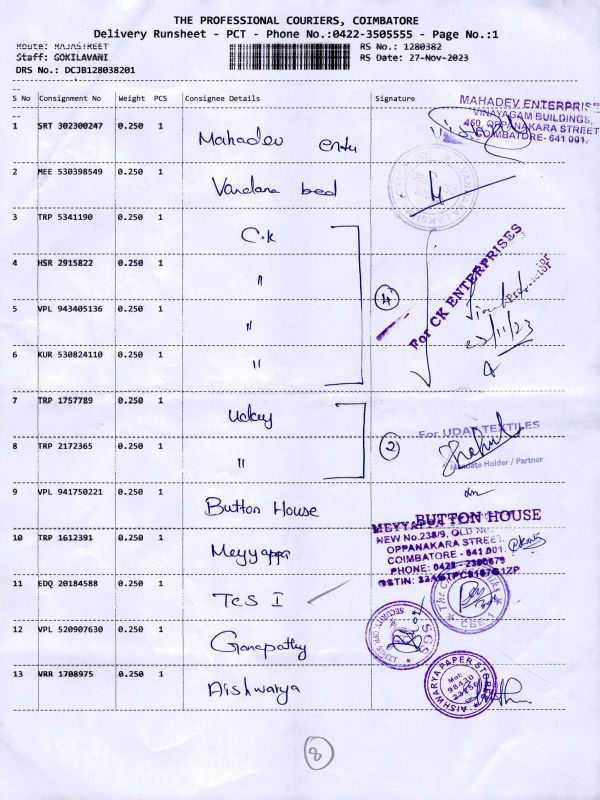 THE PROFESSIONAL COURIERS, COIMBATORE
Delivery Runsheet - PCT - Phone No.:0422-3505555 - Page No.:1
Route: RAJASTREET
Staff: GOKILAVANI
DRS No.: DCJB128038201
RS No.: 1280382
RS Date: 27-Nov-2023
S No Consignment No Weight PCS Consignee Details Signature
1 SRT 302300247 0.250 1 Mahadev enter
MAHADEV ENTERPRISE
VINAYAGAM BUILDINGS,
460, OPPANAKARA STREET
COIMBATORE- 641 001.
2 MEE 530398549 0.250 1 Vandana bed
3 TRP 5341190 0.250 1 C.K
4 HSR 2915822 0.250 1 "
4
For CK ENTERPRISES
Proprietor
27/11/23
5 VPL 943405136 0.250 1 "
6 KUR 530824110 0.250 1 "
7 TRP 1757789 0.250 1 Uday
For UDAY TEXTILES
8 TRP 2172365 0.250 1 "
2
Mandate Holder / Partner
9 VPL 941750221 0.250 1 Button House
BUTTON HOUSE
10 TRP 1612391 0.250 1 Meyyappa
MEYYAPPA
NEW No.238/9, OLD
OPPANAKARA STREET,
COIMBATORE - 641 001.
PHONE: 0422 - 2390679
GSTIN:
11 EDQ 20184588 0.250 1 TCS I
The
CBE-1
12 VPL 520907630 0.250 1 Ganapathy
SGS
13 VRR 1708975 0.250 1 Aishwarya
AISHWARYA PAPER STORES
Mob:
98430
8